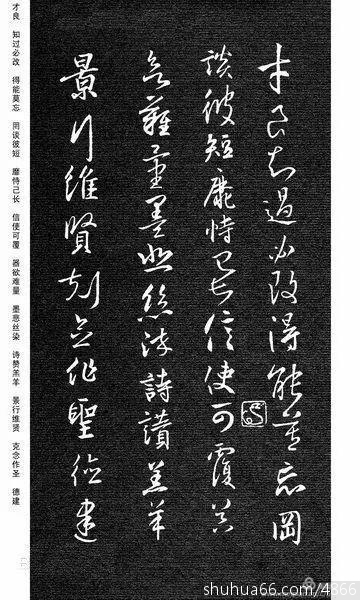 才良知過必改得能莫忘罔
談彼短靡恃己長信使可覆器
欲難量墨悲絲染詩讚羔羊
景行維賢剋念作聖德建
才良 知过必改 得能莫忘 罔谈彼短 靡恃己长 信使可覆 器欲难量 墨悲丝染 诗赞羔羊 景行维贤 克念作圣 德建
shuhua66.com/4866